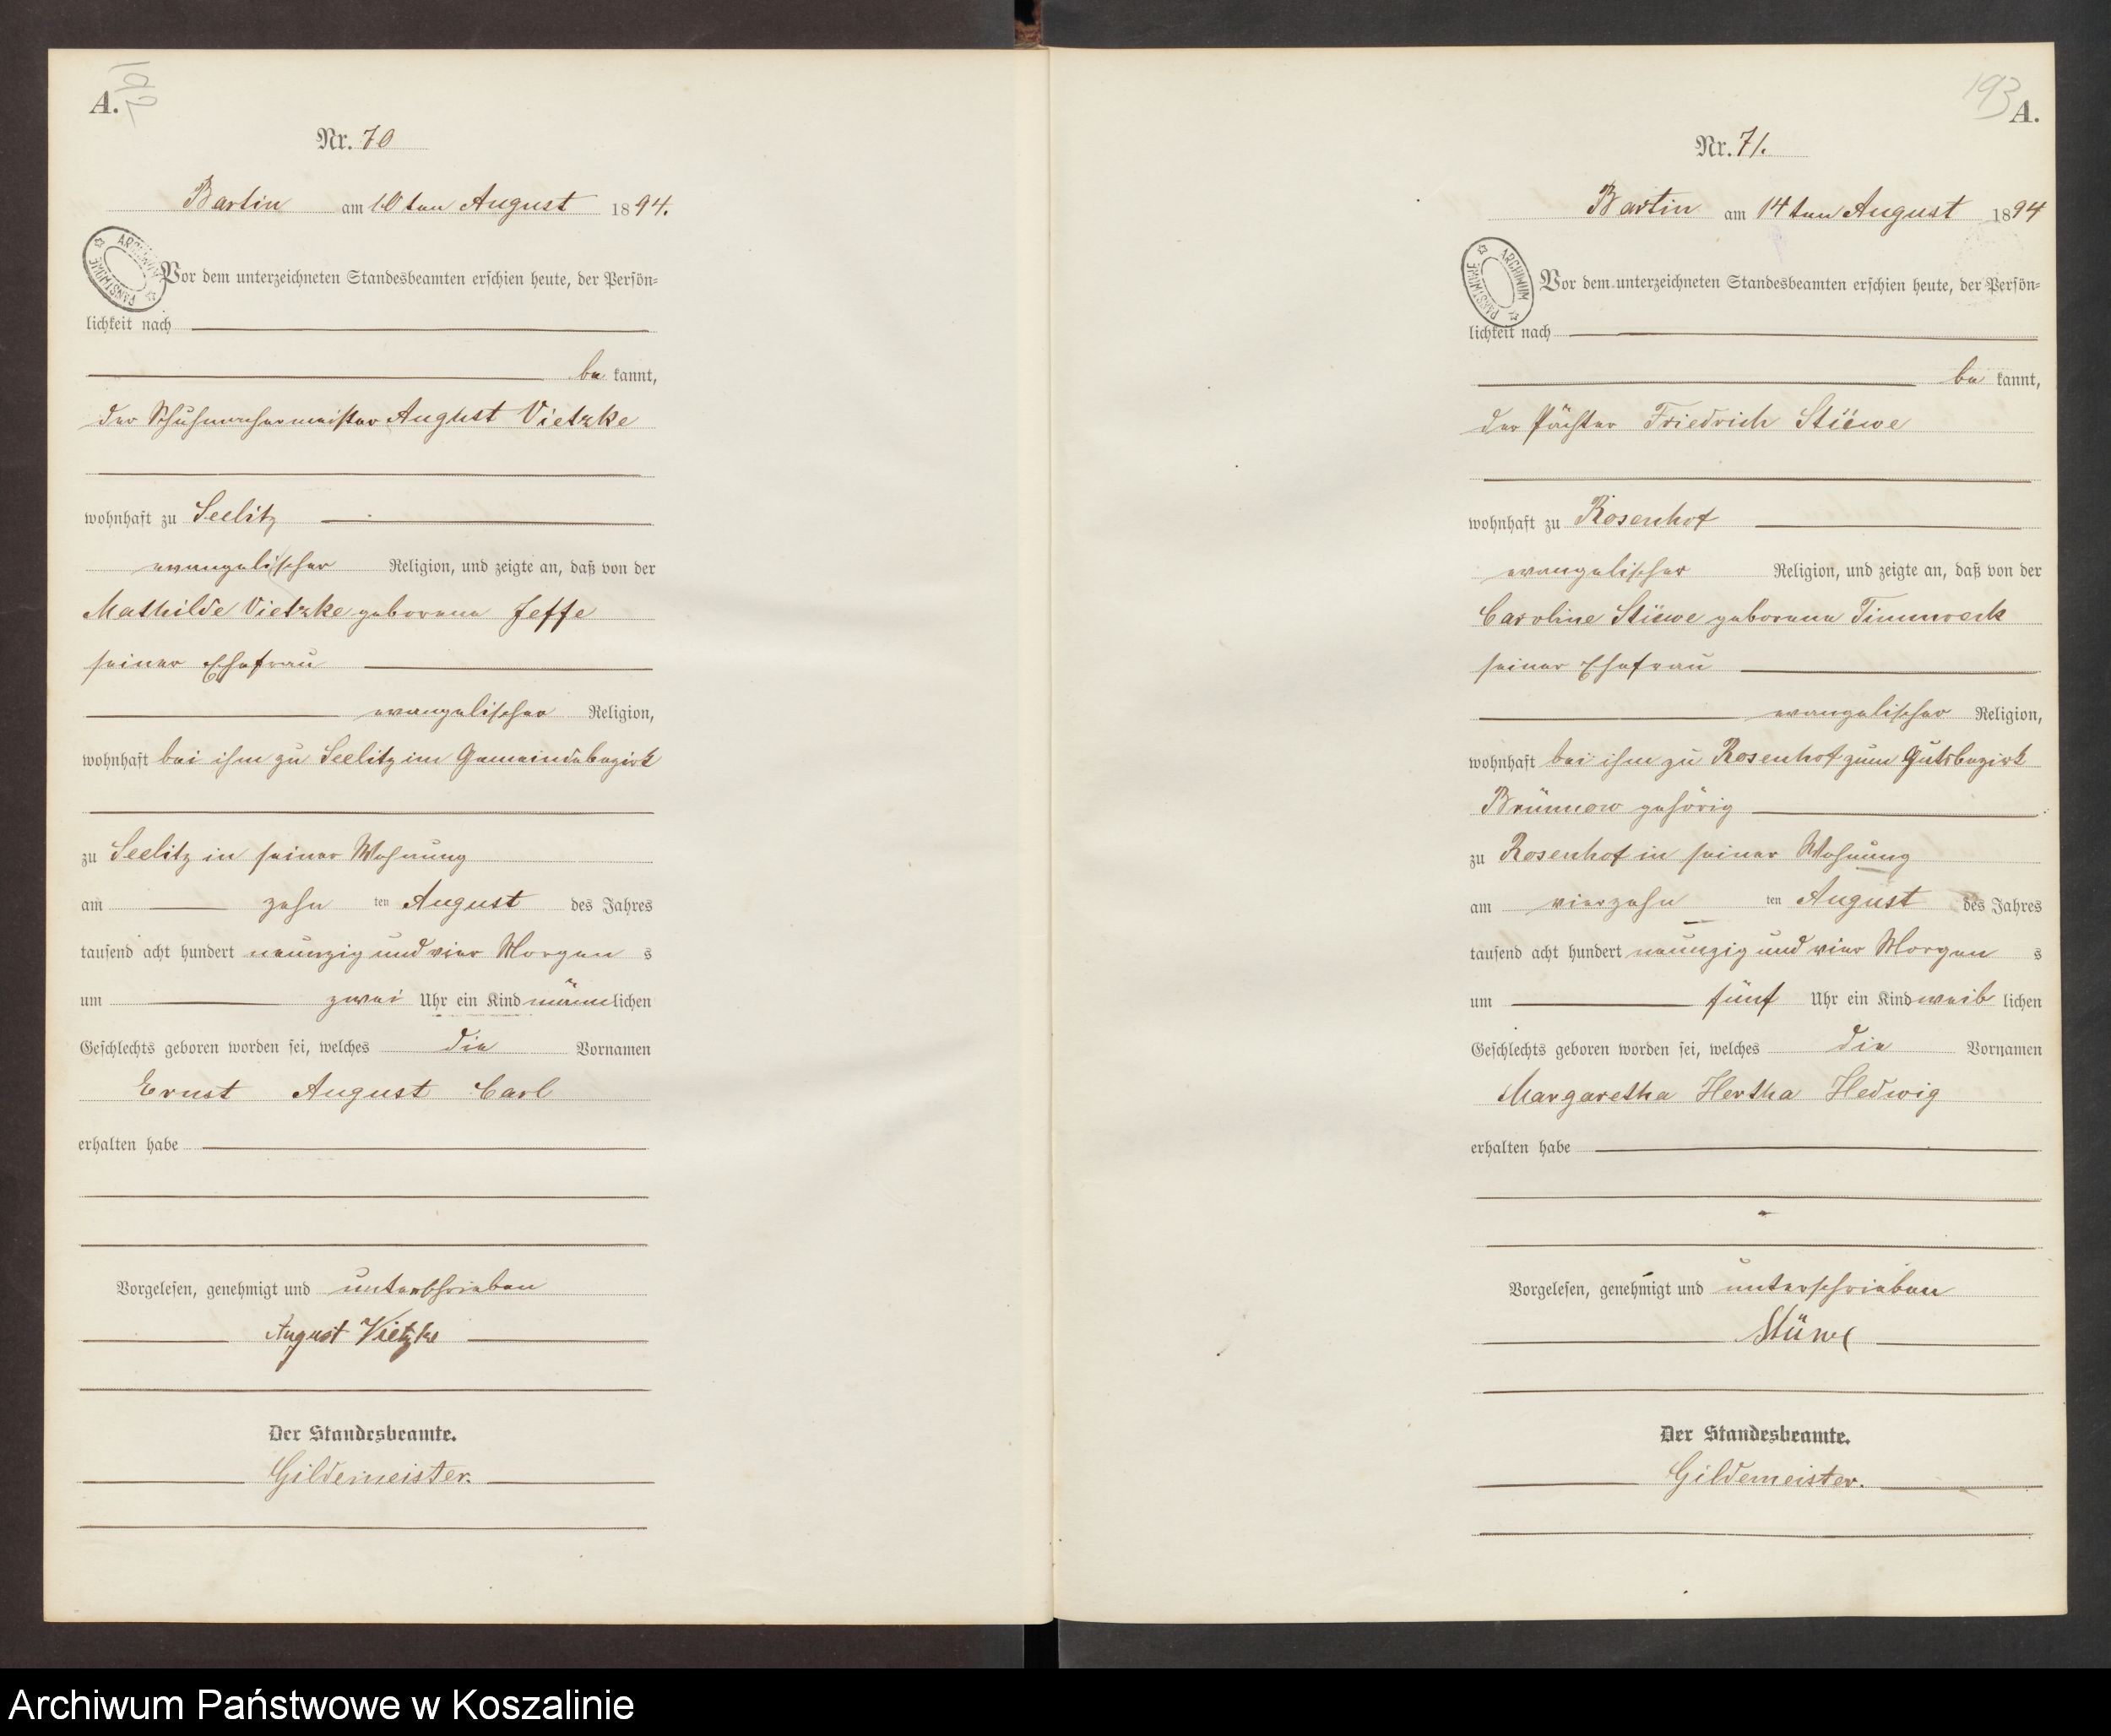 A.
Nr. 70
Bartin am 10ten August 1894.
ARCHIWUM PAŃSTWOWE
Vor dem unterzeichneten Standesbeamten erschien heute, der Persön=
lichkeit nach
be kannt,
der Schuhmachermeister August Vietzke
wohnhaft zu Seelitz
evangelischer Religion, und zeigte an, daß von der
Mathilde Vietzke geborene Jeffe
seiner Ehefrau
evangelischer Religion,
wohnhaft bei ihm zu Seelitz im Gemeindebezirk
zu Seelitz in seiner Wohnung
am zehn ten August des Jahres
tausend acht hundert neunzig und vier Morgen s
um zwei Uhr ein Kind männlichen
Geschlechts geboren worden sei, welches die Vornamen
Ernst August Carl
erhalten habe
Vorgelesen, genehmigt und unterschrieben
August Vietzke
Der Standesbeamte.
Gildemeister.
193
A.
Nr. 71.
Bartin am 14ten August 1894
ARCHIWUM PAŃSTWOWE
Vor dem unterzeichneten Standesbeamten erschien heute, der Persön=
lichkeit nach
be kannt,
der Pächter Friedrich Stüwe
wohnhaft zu Rosenhof
evangelischer Religion, und zeigte an, daß von der
Caroline Stüwe geborene Timmreck
seiner Ehefrau
evangelischer Religion,
wohnhaft bei ihm zu Rosenhof zum Gutsbezirk
Brünnow gehörig
zu Rosenhof in seiner Wohnung
am vierzehn ten August des Jahres
tausend acht hundert neunzig und vier Morgen s
um fünf Uhr ein Kind weib lichen
Geschlechts geboren worden sei, welches die Vornamen
Margaretha Hertha Hedwig
erhalten habe
Vorgelesen, genehmigt und unterschrieben
Stüwe
Der Standesbeamte.
Gildemeister.
Archiwum Państwowe w Koszalinie